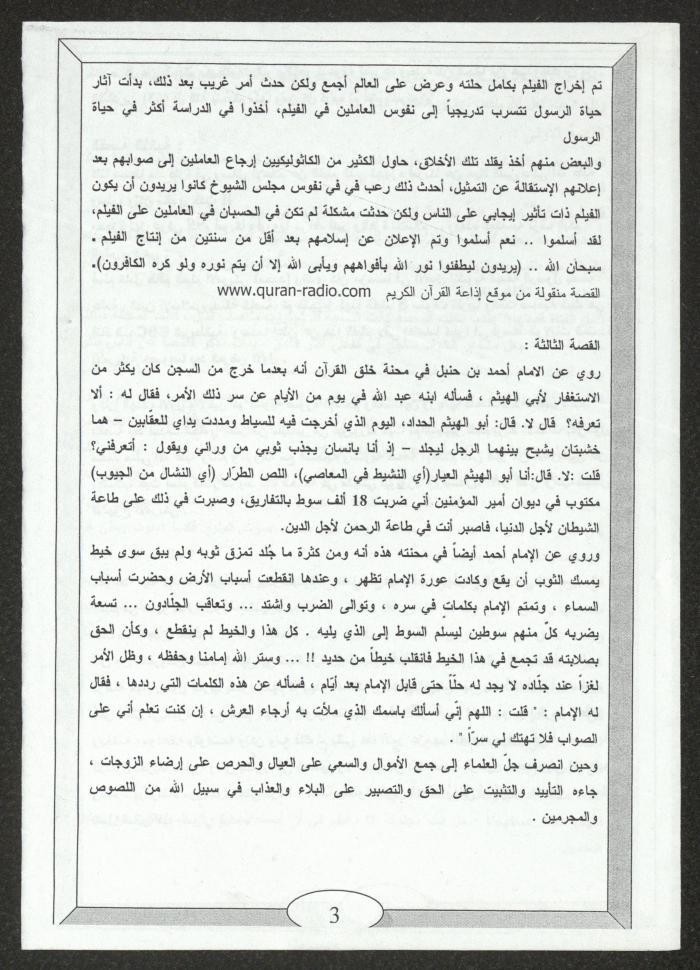 تم إخراج الفيلم بكامل حلته وعرض على العالم أجمع ولكن حدث أمر غريب بعد ذلك، بدأت آثار
حياة الرسول تتسرب تدريجياً إلى نفوس العاملين في الفيلم، أخذوا في الدراسة أكثر في حياة
الرسول
والبعض منهم أخذ يقلد تلك الأخلاق، حاول الكثير من الكاثوليكيين إرجاع العاملين إلى صوابهم بعد
إعلانهم الإستقالة عن التمثيل، أحدث ذلك رعب في في نفوس مجلس الشيوخ كانوا يريدون أن يكون
الفيلم ذات تأثير إيجابي على الناس ولكن حدثت مشكلة لم تكن في الحسبان في العاملين على الفيلم،
لقد أسلموا .. نعم أسلموا وتم الإعلان عن إسلامهم بعد أقل من سنتين من إنتاج الفيلم .
سبحان الله .. (يريدون ليطفئوا نور الله بأفواههم ويأبى الله إلا أن يتم نوره ولو كره الكافرون).
القصة منقولة من موقع إذاعة القرآن الكريم www.quran-radio.com
القصة الثالثة :
روي عن الامام أحمد بن حنبل في محنة خلق القرآن أنه بعدما خرج من السجن كان يكثر من
الاستغفار لأبي الهيثم ، فسأله ابنه عبد الله في يوم من الأيام عن سر ذلك الأمر، فقال له : ألا
تعرفه؟ قال لا. قال: أبو الهيثم الحداد، اليوم الذي أخرجت فيه للسياط ومددت يداي للعقّابين – هما
خشبتان يشبح بينهما الرجل ليجلد – إذ أنا بانسان يجذب ثوبي من ورائي ويقول : أتعرفني؟
قلت :لا. قال:أنا أبو الهيثم العيار(أي النشيط في المعاصي)، اللص الطرّار (أي النشال من الجيوب)
مكتوب في ديوان أمير المؤمنين أني ضربت 18 ألف سوط بالتفاريق، وصبرت في ذلك على طاعة
الشيطان لأجل الدنيا، فاصبر أنت في طاعة الرحمن لأجل الدين.
وروي عن الإمام أحمد أيضاً في محنته هذه أنه ومن كثرة ما جُلد تمزق ثوبه ولم يبق سوى خيط
يمسك الثوب أن يقع وكادت عورة الإمام تظهر ، وعندها انقطعت أسباب الأرض وحضرت أسباب
السماء ، وتمتم الإمام بكلماتٍ في سره ، وتوالى الضرب واشتد ... وتعاقب الجلّادون ... تسعة
يضربه كلّ منهم سوطين ليسلّم السوط إلى الذي يليه . كل هذا والخيط لم ينقطع ، وكأن الحق
بصلابته قد تجمع في هذا الخيط فانقلب خيطاً من حديد !! ... وستر الله إمامنا وحفظه ، وظل الأمر
لغزاً عند جلّاده لا يجد له حلّاً حتى قابل الإمام بعد أيّام ، فسأله عن هذه الكلمات التي رددها ، فقال
له الإمام : " قلت : اللهم إنّي أسألك باسمك الذي ملأت به أرجاء العرش ، إن كنت تعلم أني على
الصواب فلا تهتك لي سرّاً " .
وحين انصرف جلّ العلماء إلى جمع الأموال والسعي على العيال والحرص على إرضاء الزوجات ،
جاءه التأييد والتثبيت على الحق والتصبير على البلاء والعذاب في سبيل الله من اللصوص
والمجرمين .
3